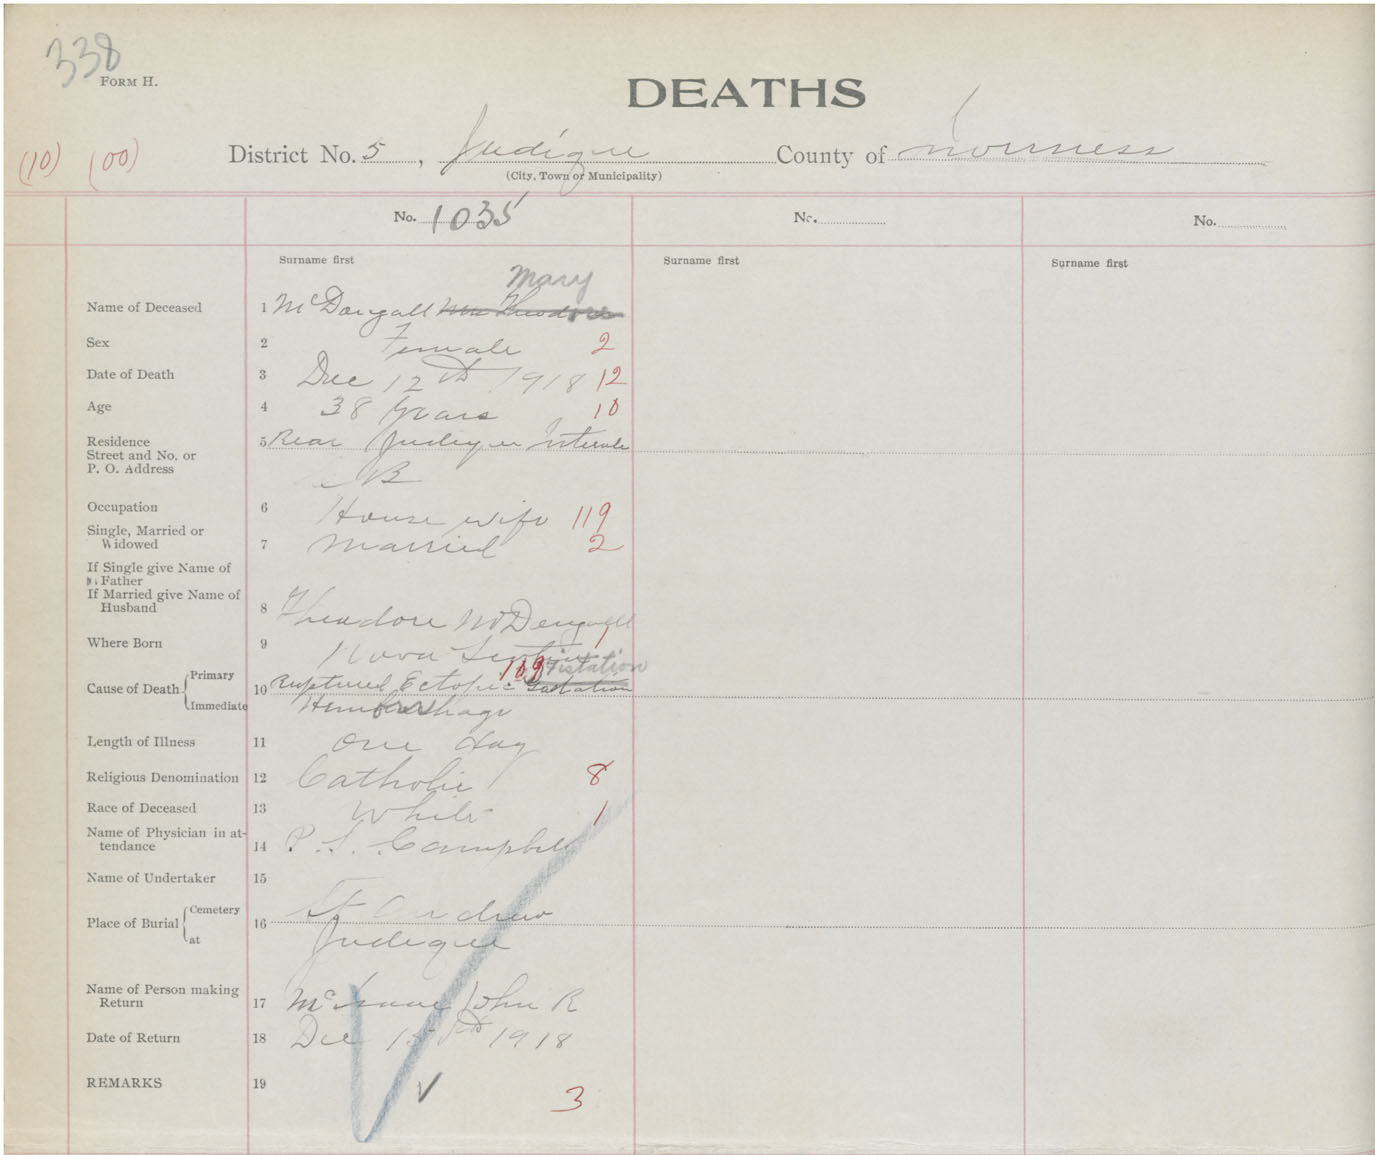 338
FORM H.
DEATHS
(10) (00) District No. 5, Judique County of Inverness
(City, Town or Municipality)
No. 1035 No. No.
Surname first Surname first Surname first
Mary
Name of Deceased 1 McDougall Mrs Theodore
Sex 2 Female 2
Date of Death 3 Dec 12th 1918 12
Age 4 38 Years 10
Residence 5 Rear Judique Intervale
Street and No. or
P. O. Address B
Occupation 6 House wife 119
Single, Married or
Widowed 7 Married 2
If Single give Name of
Father
If Married give Name of
Husband 8 Theadore McDougall
Where Born 9 Nova Scotia 1
109 Gistation
Cause of Death Primary 10 Ruptured Ectopic Gastation
Immediate Hemorrhage
Length of Illness 11 One day
Religious Denomination 12 Catholic 8
Race of Deceased 13 White 1
Name of Physician in at-
tendance 14 P. S. Campbell
Name of Undertaker 15
Place of Burial Cemetery 16 St Andrew
at Judique
Name of Person making
Return 17 McIsaac John R
Date of Return 18 Dec 15th 1918
REMARKS 19
3